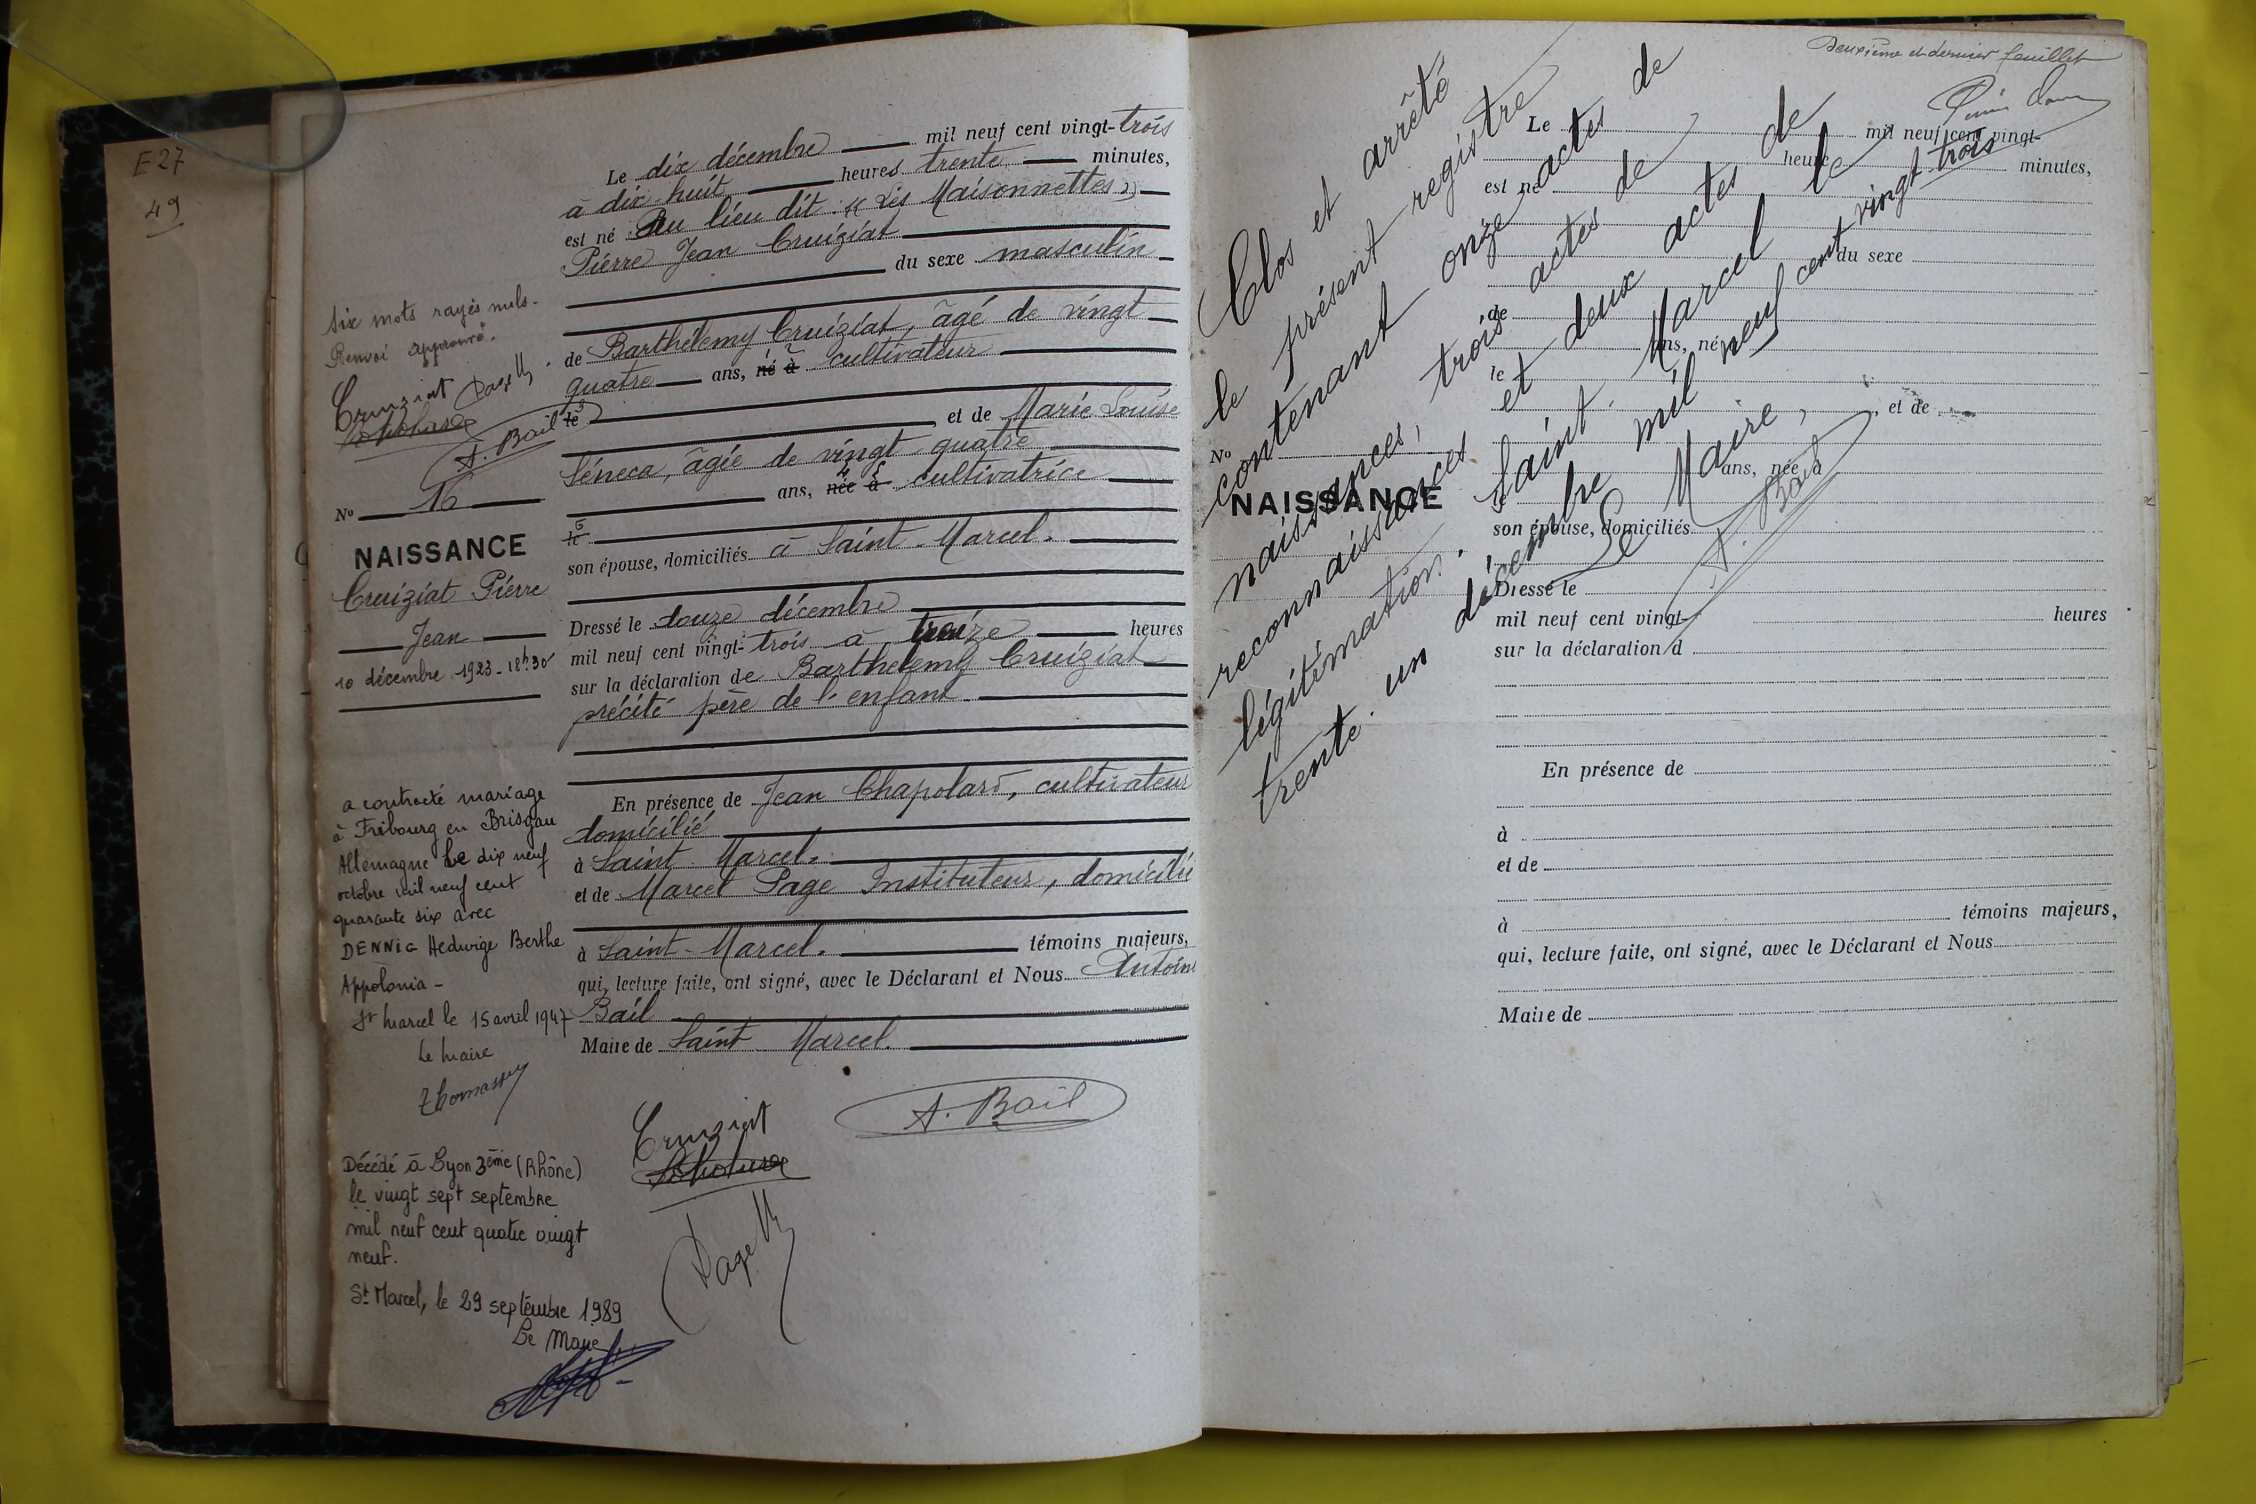 E 27
49
Le dix décembre mil neuf cent vingt-trois
à dix huit heures trente minutes,
est né Au lieu dit "Les Maisonnettes"
Pierre Jean Cruiziat
du sexe masculin
de Barthélemy Cruiziat, âgé de vingt
quatre ans, né à cultivateur
le
et de Marie Louise
Séneca, âgée de vingt quatre
ans, née à cultivatrice
le
son épouse, domiciliés à Saint-Marcel.
Dressé le douze décembre
mil neuf cent vingt-trois à treize heures
sur la déclaration de Barthelemy Cruiziat
précité père de l'enfant
En présence de Jean Chapolard, cultivateur
domicilié
à Saint Marcel.
et de Marcel Page Instituteur, domicilié
à Saint-Marcel. témoins majeurs,
qui, lecture faite, ont signé, avec le Déclarant et Nous Antoine
Bail
Maire de Saint Marcel.
Cruiziat
A. Bail
Page M
Six mots rayés nuls.
Renvoi approuvé.
Cruiziat Page M
A. Bail
No 16
NAISSANCE
Cruiziat Pierre
Jean
10 décembre 1923 - 18h30
a contracté mariage
à Fribourg en Brisgau
Allemagne Le dix neuf
octobre mil neuf cent
quarante six avec
DENNIG Hedwige Berthe
Appolonia -
St Marcel le 15 avril 1947
Le Maire
Thomassey
Décédé à Lyon 3ème (Rhône)
le vingt sept septembre
mil neuf cent quatre vingt
neuf.
St Marcel, le 29 septembre 1989
Le Maire
Deuxième et dernier feuillet
Clos et arrêté
le présent registre
contenant onze actes de
naissances, trois actes de
reconnaissances et deux actes de
légitimation. Saint-Marcel le
trente-un décembre mil neuf cent vingt trois
Le Maire,
A. Bail
Le mil neuf cent vingt-
heure minutes,
est né
du sexe
de
ans, né
le
et de
No
NAISSANCE
ans, née à
le
son épouse, domiciliés
Dressé le
mil neuf cent vingt- heures
sur la déclaration d
En présence de
à
et de
à témoins majeurs,
qui, lecture faite, ont signé, avec le Déclarant et Nous
Maire de